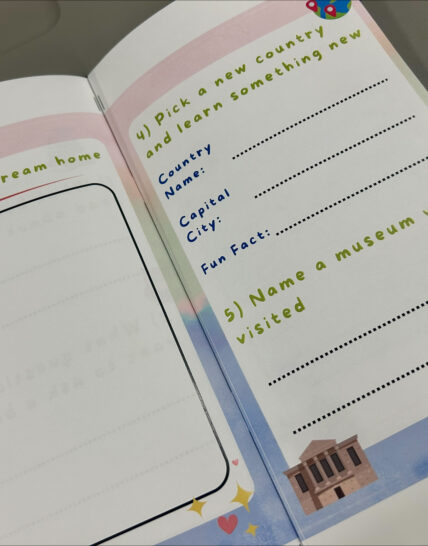 ream home
4) Pick a new country
and learn something new
Country
Name:
Capital
City:
Fun Fact:
5) Name a museum
visited